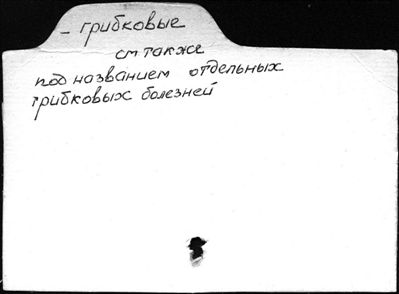 – грибковые
см также
под названием отдельных
грибковых болезней